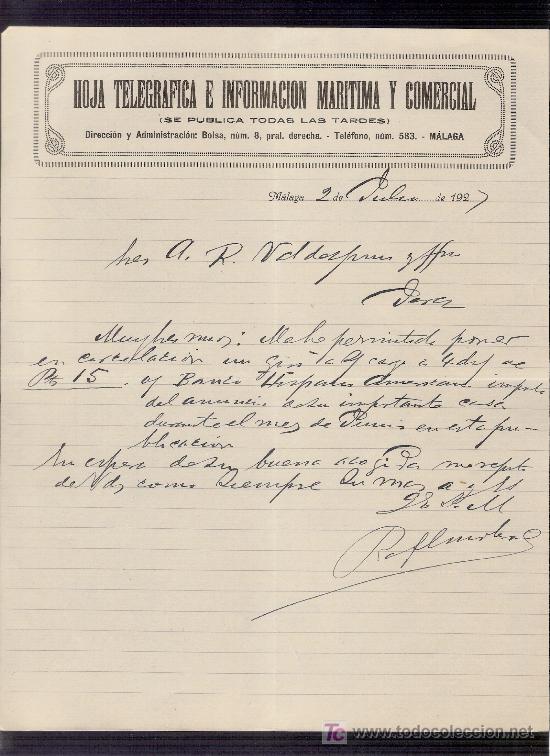 HOJA TELEGRAFICA E INFORMACION MARITIMA Y COMERCIAL
(SE PUBLICA TODAS LAS TARDES)
Dirección y Administración: Bolsa, núm. 8, pral. derecha. - Teléfono, núm. 583. - MÁLAGA
Málaga 2 de Julio de 1927
Sres A. R. Valdespino y Hno
Jerez
Muy Sres mios: Me he permitido poner
en circulacion un giro a cargo a 4 d/v de
Pts 15 o/ Banco Hispano Americano importe
del anuncio de su importante casa
durante el mes de Junio en esta pu-
blicacion
En espera de su buena acogida me repito
de Vds como siempre su mas a. s.s
Q E S. M
todocoleccion
www.todocoleccion.net